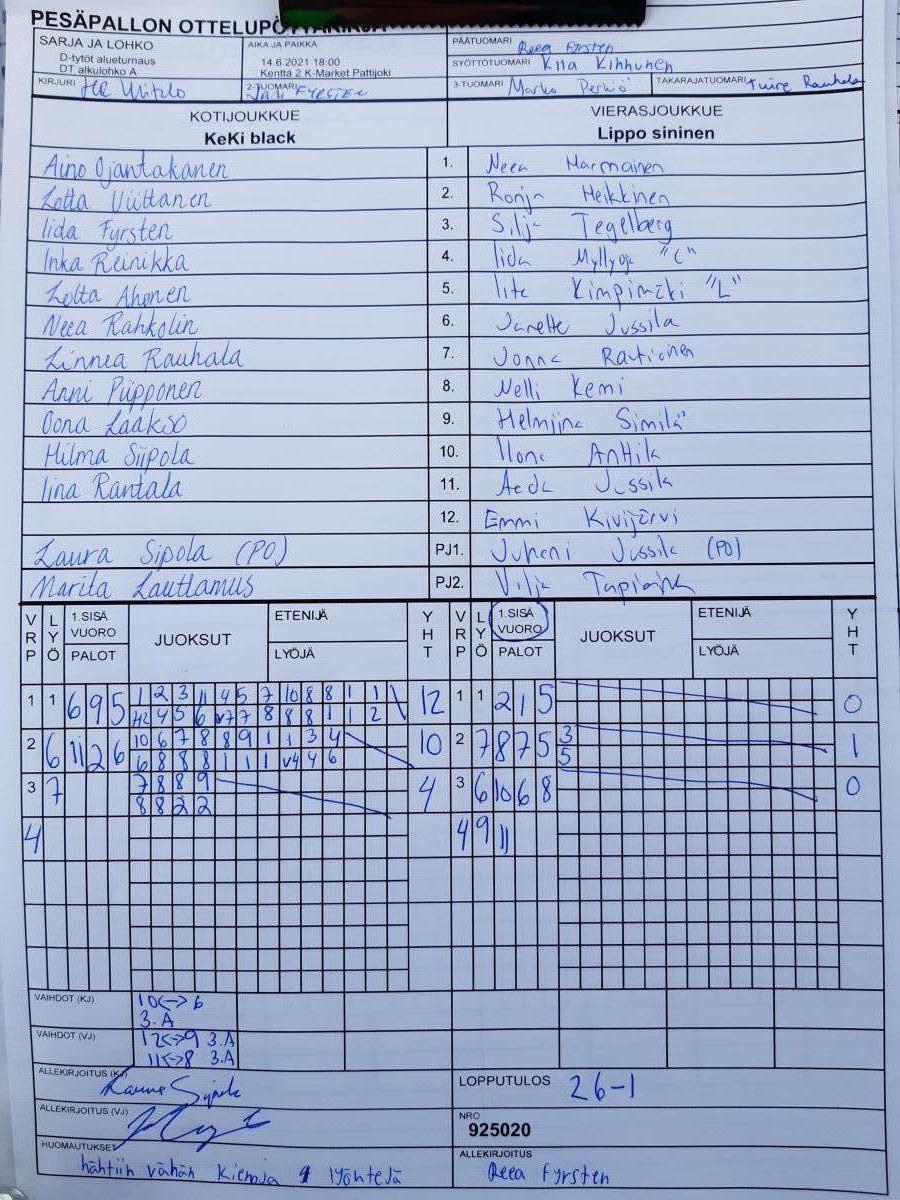 PESÄPALLON OTTELUPÖYTÄKIRJA
SARJA JA LOHKO
D-tytöt alueturnaus
DT alkulohko A
AIKA JA PAIKKA
14.6.2021 18:00
Kenttä 2 K-Market Pattijoki
PÄÄTUOMARI Reea Fyrsten
SYÖTTÖTUOMARI Kiia Kihhunen
KIRJURI
2-TUOMARI Jani FYRSTEN
3-TUOMARI Marko
TAKARAJATUOMARI Tuire Rauhala
KOTIJOUKKUE
KeKi black
VIERASJOUKKUE
Lippo sininen
Aino Ojantakanen 1. Neea Marmainen
Lotta Viittanen 2. Ronja Heikkinen
Iida Fyrsten 3. Silja Tegelberg
Inka Reinikka 4. Iida Myllyoja "C"
Lotta Ahonen 5. Iita Kimpimäki "L"
Neea Rahkolin 6. Janette Jussila
Linnea Rauhala 7. Jonna Rautionen
Anni Piipponen 8. Nelli Kemi
Oona Laakso 9. Helmiina Similä
Hilma Siipola 10. Ilona Anttila
Iina Rantala 11. Aada Jussila
12. Emmi Kivijärvi
Laura Sipola (PO) PJ1. Juhani Jussila (PO)
Marita Lauttamus PJ2. Vilja
VRP LYÖ 1.SISÄ VUORO PALOT JUOKSUT ETENIJÄ LYÖJÄ YHT
VRP LYÖ 1.SISÄ VUORO PALOT JUOKSUT ETENIJÄ LYÖJÄ YHT
1 1 6 9 5 1 2 3 11 4 5 7 10 8 8 1 1 12 1 1 2 1 5 0
4 5 6 7 8 8 8 1 1 2
2 6 11 2 6 10 6 7 8 8 9 1 1 3 4 10 2 7 8 7 5 3 1
6 8 8 8 1 1 1 v4 4 6 5
3 7 7 8 8 9 4 3 6 10 6 8 0
8 8 2 2
4 4 9 11
VAIHDOT (KJ) 10<->6
3.A
VAIHDOT (VJ) 12<->9 3.A
11<->8 3.A
ALLEKIRJOITUS (KJ)
LOPPUTULOS 26-1
ALLEKIRJOITUS (VJ)
NRO
925020
HUOMAUTUKSET
hähtiin vähän
ALLEKIRJOITUS
Reea Fyrsten